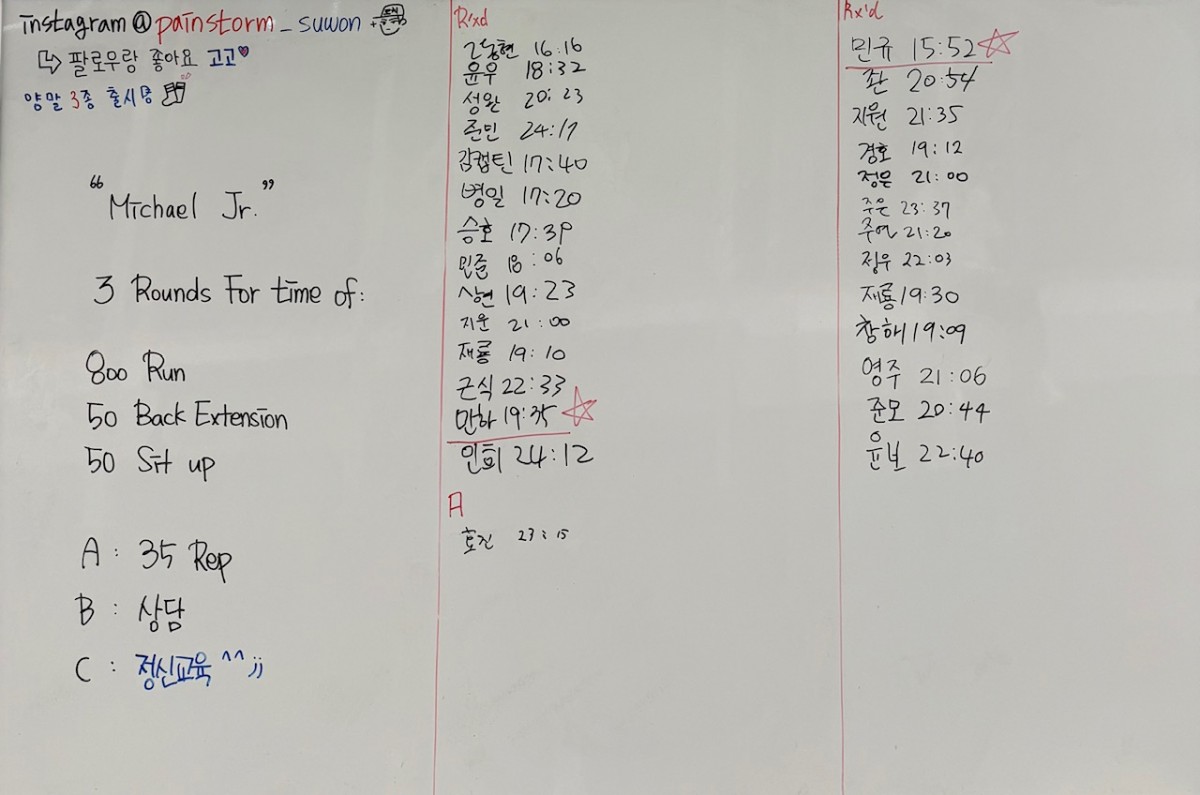 instagram@painstorm_suwon
팔로우랑 좋아요 고고
양말 3종 출시중
"Michael Jr."
3 Rounds For time of:
800 Run
50 Back Extension
50 Sit up
A : 35 Rep
B : 상담
C : 정신교육 ^^;;
Rxd
16:16
윤우 18:32
성완 20:23
준민 24:17
김캡틴 17:40
병일 17:20
승호 17:39
민준 18:06
상현 19:23
지운 21:00
재룡 19:10
근식 22:33
만하 19:35
인회 24:12
A
효진 23:15
Rx'd
민규 15:52
촨 20:54
지원 21:35
경호 19:12
정은 21:00
주은 23:37
21:20
정우 22:03
재룡 19:30
창해 19:09
영주 21:06
준모 20:44
윤보 22:40